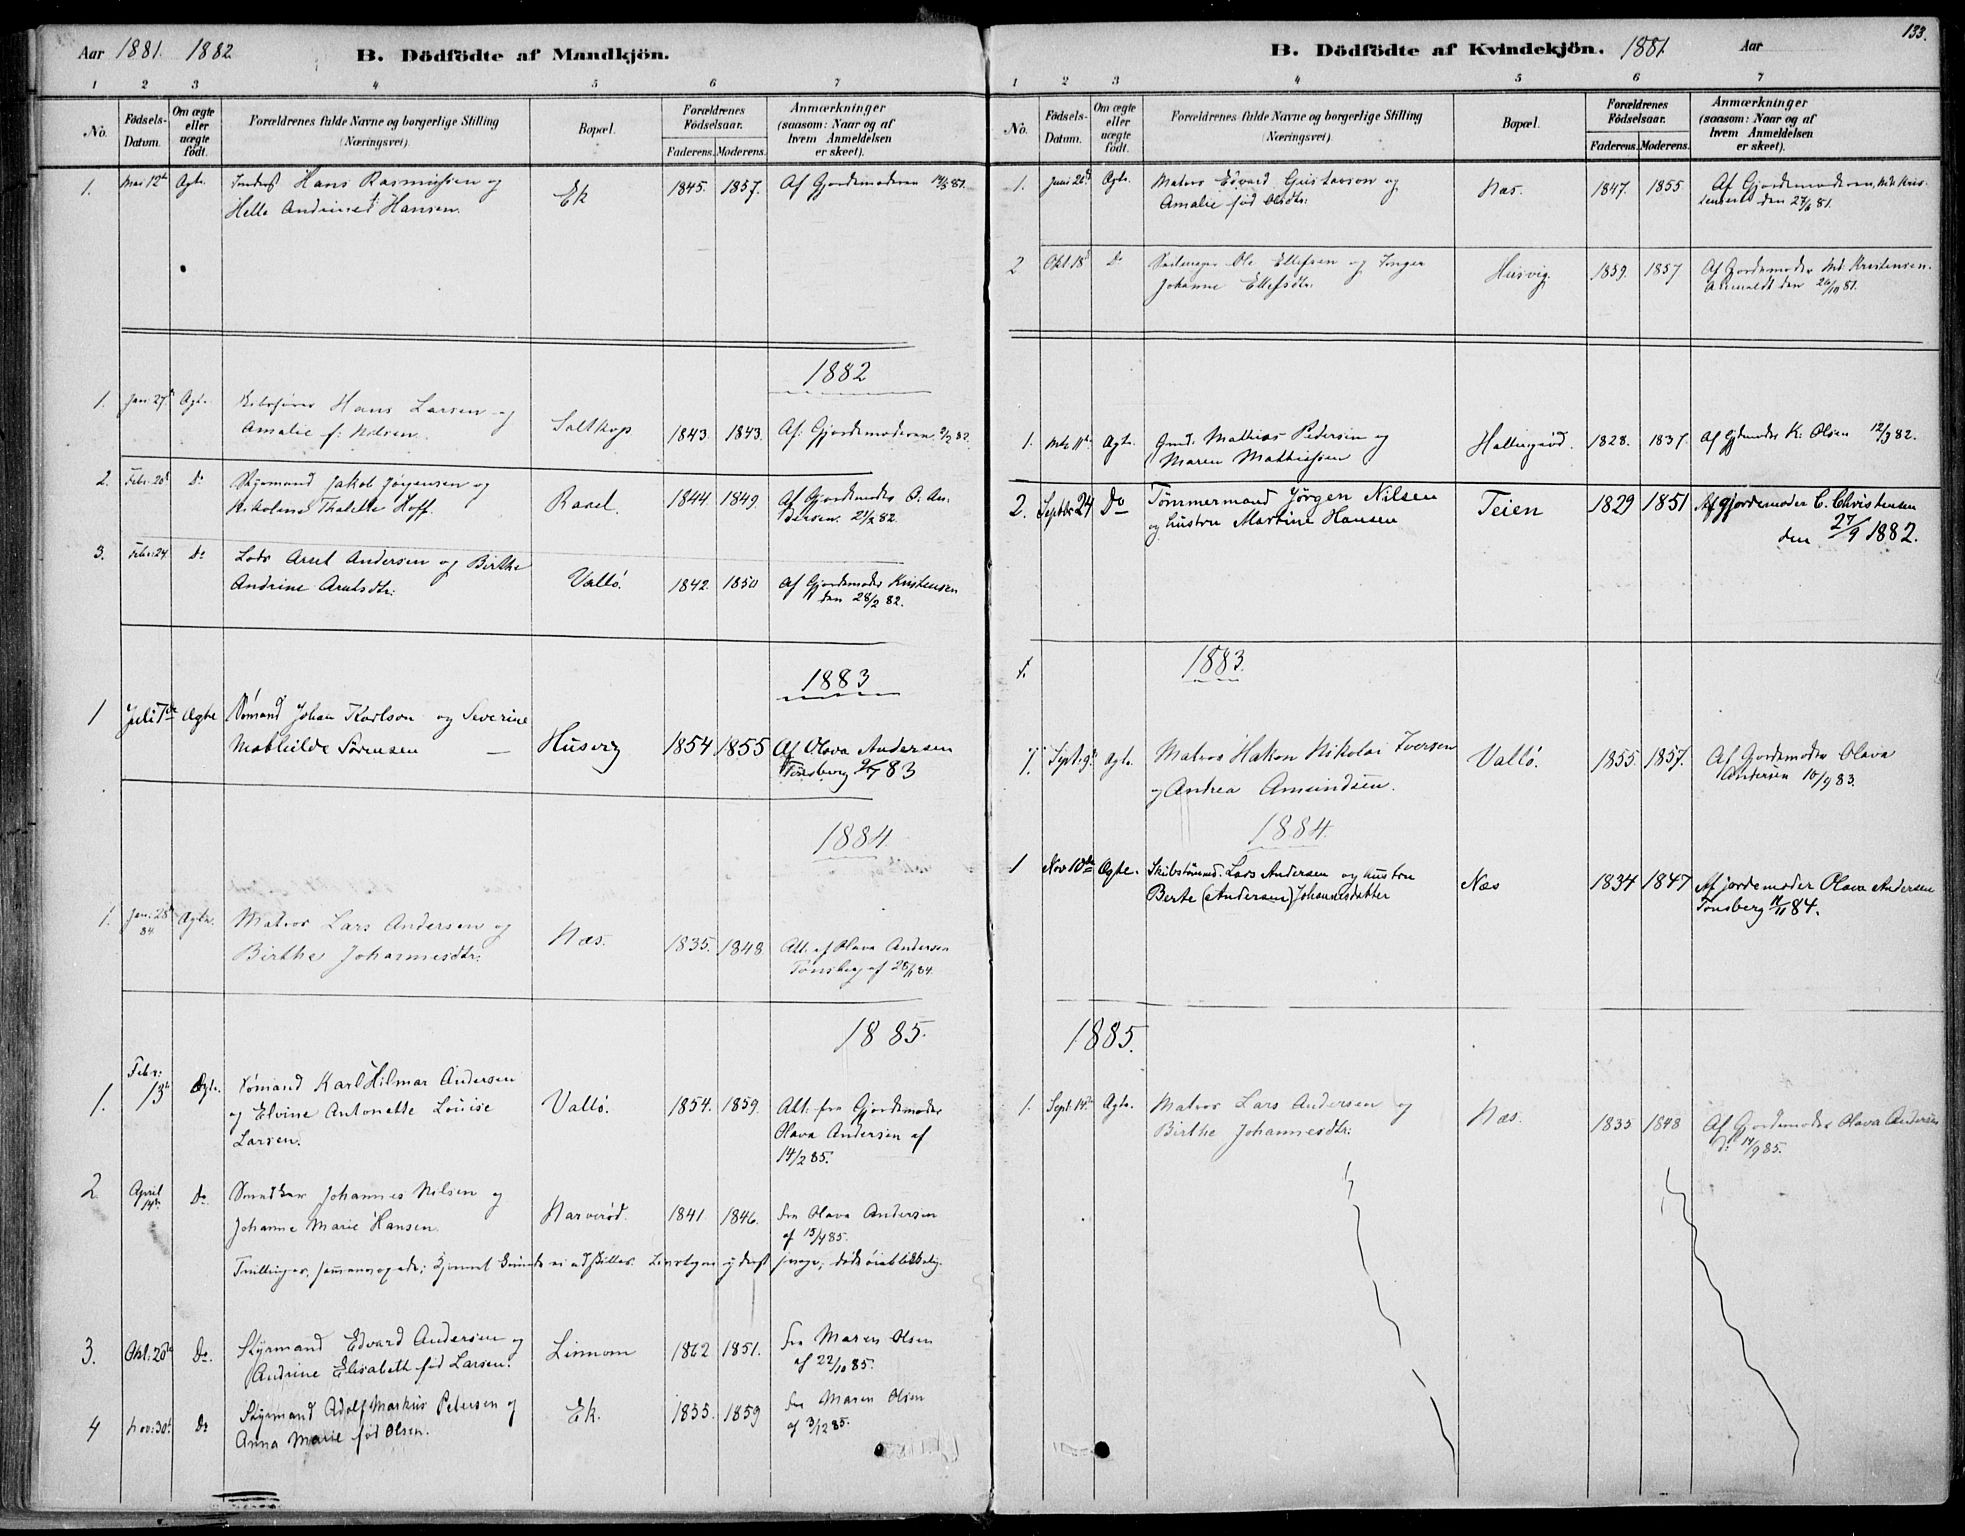 Aar 1881. 1882 B. Dödfödte af Mandkjön.
1 2 3 4 5 6 7
No. Födsels-Datum. Om ægte eller uægte født. Forældrenes fulde Navne og borgerlige Stilling (Næringsvei). Bopæl. Forældrenes Födselsaar. Faderens. Moderens. Anmærkninger (saasom: Naar og af hvem Anmeldelsen er skeet).
1. Mar 12te Ægte. Hans Rasmussen og Ek 1845. 1857. Af Gjordemoderen 14/3 81.
Helle Andrine Hansen.
1882
1. Jan: 27de Ægte. Hans Larsen og
Amalie f: Nilsen. Saltkop 1843. 1843. Af: Gjordemoderen 2/2 82.
2. Febr: 20de Do Styrmand Jakob Jørgensen og
Nikoline Thalette Hoff. Rasel. 1844. 1849. Af Gjordemoder O. An-
dersen. 21/2 82.
3. Febr: 24. Do Lods Arnt Andersen og Birthe
Andrine Arntsdtr: Vallö. 1842. 1850 Af Gjordemoder Kristensen
den 28/2 82.
1883
1 Juli 7de Ægte Sømand Johan Karlson og Severine
Mathilde Sörensen — Husvig 1854 1855 Af Olava Andersen
Tönsberg 9/7 83
1884
1. Jan: 28de 84 Ægte. Matros Lars Andersen og
Birthe Johannesdtr: Næs. 1835. 1848 Att. af Olava Andersen
Tönsberg af 28/1 84.
1885.
1. Febr: 13de Ægte. Sømand Karl Hilmar Andersen
og Elvine Antonette Louise
Larsen. Vallö. 1854. 1859. Att: fra Gjordemoder
Olava Andersen af
14/2 85.
2. April 14de Do Snedker Johannes Nilsen og
Johanne Marie Hansen. Narverød. 1841. 1846. fra Olava Andersen
af 15/4 85.
Tvillinger, Kjønnet kunde ei adskilles. Livstegn svage, döde öieblikkelig.
3. Okt: 20de Do. Styrmand Edvard Andersen og
Andrine Elisabeth föd Larsen. Linnom 1862 1851. fra Maren Olsen
af 22/10 85.
4 Nov: 30te Do Styrmand Adolf Markus Petersen og
Anna Marie föd Olsen. Ek. 1855. 1859 fra Maren Olsen
af 3/12 85.
B. Dödfödte af Kvindekjön. 1881 Aar 133.
1 2 3 4 5 6 7
No. Födsels-Datum. Om ægte eller uægte födt. Forældrenes fulde Navne og borgerlige Stilling (Næringsvei). Bopæl. Forældrenes Födselsaar. Faderens. Moderens. Anmærkninger (saasom: Naar og af hvem Anmeldelsen er skeet).
1. Juni 26de Ægte. Matros Edvard Gustavson og
Amalie föd Olsdtr: Næs. 1847. 1855 Af Gjordemoderen, Kris-
tensen den 27/6 81.
2 Okt 18de Do Ole Ellefsen og Inger
Johanne Ellefsdtr. Husvig. 1859. 1857 Af Gjordemoder Kristensen.
Anmeldt den 20/10 81.
1. 11te Ægte. Gmd. Mathias Pedersen og
Maren Mathissen Hallingröd. 1828. 1837. Af Gjdmoder K: Olsen 12/3 82.
2. Septbr 24 Do Tömmermand Jörgen Nilsen
og hustru Martine Hansen Teien 1829 1851 Af gjordemoder C. Christensen
den 27/9 1882.
1. 1883.
1. Sept: 9de Ægte. Matros Hakon Nikolai Iversen
og Andrea Amundsen. Vallö. 1855. 1857. Af Gjordemoder Olava
Andersen 10/9 83.
1884.
1 Nov 10de Ægte. Skibstömmd. Lars Andersen og hustru
Berte (Andersen) Johannesdatter Næs 1834 1847 Af jordemoder Olava Andersen
Tönsberg 11/11 84.
1885.
1. Sept: 14de Ægte. Matros Lars Andersen og
Birthe Johannesdtr: Næs. 1835 1848 Af Gjordemoder Olava Andersen
d: 14/9 85.